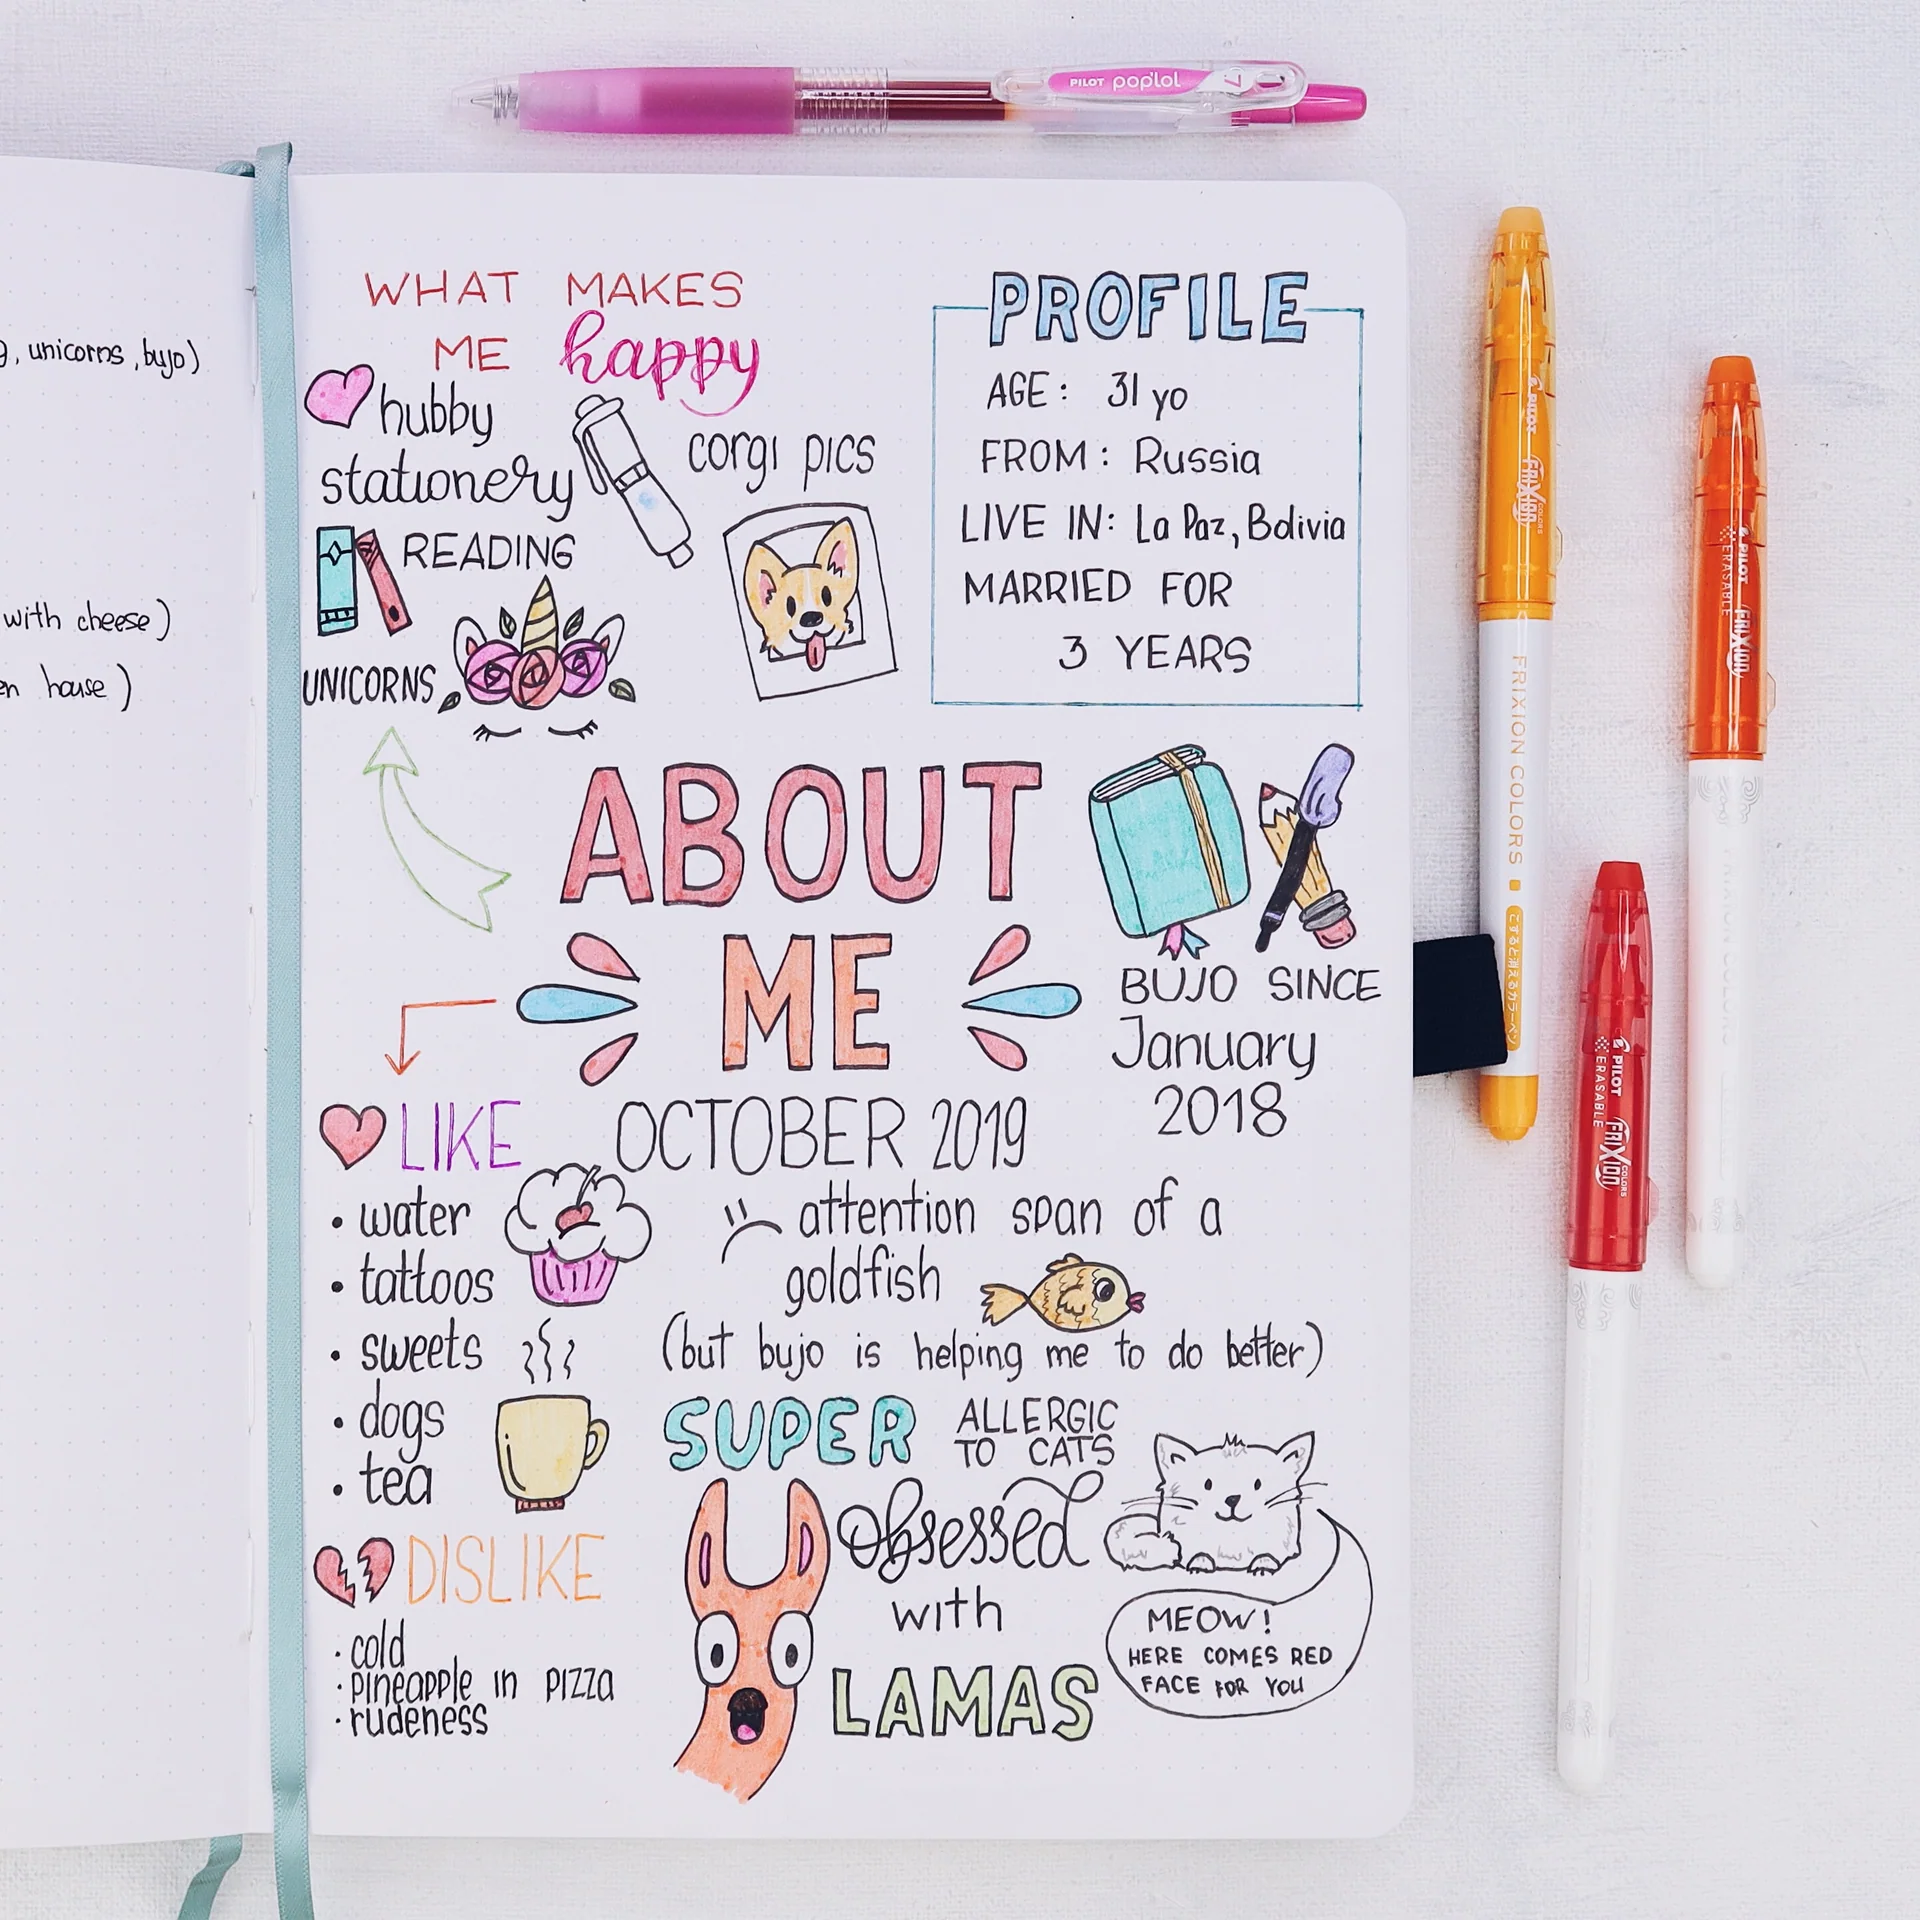 PILOT pop'lol 7
unicorns, bujo)
with cheese)
house)
WHAT MAKES
ME happy
hubby
stationery
READING
UNICORNS
corgi pics
PROFILE
AGE: 31 yo
FROM: Russia
LIVE IN: La Paz, Bolivia
MARRIED FOR
3 YEARS
ABOUT
ME
OCTOBER 2019
BUJO SINCE
January
2018
LIKE
• water
• tattoos
• sweets
• dogs
• tea
DISLIKE
· cold
· pineapple in pizza
· rudeness
attention span of a
goldfish
(but bujo is helping me to do better)
SUPER
ALLERGIC
TO CATS
obsessed
with
LAMAS
MEOW!
HERE COMES RED
FACE FOR YOU
PILOT
FRIXION COLORS
FRIXION COLORS
こすると消えるカラーペン
PILOT
ERASABLE
FRIXION
PILOT
ERASABLE
FRIXION COLORS